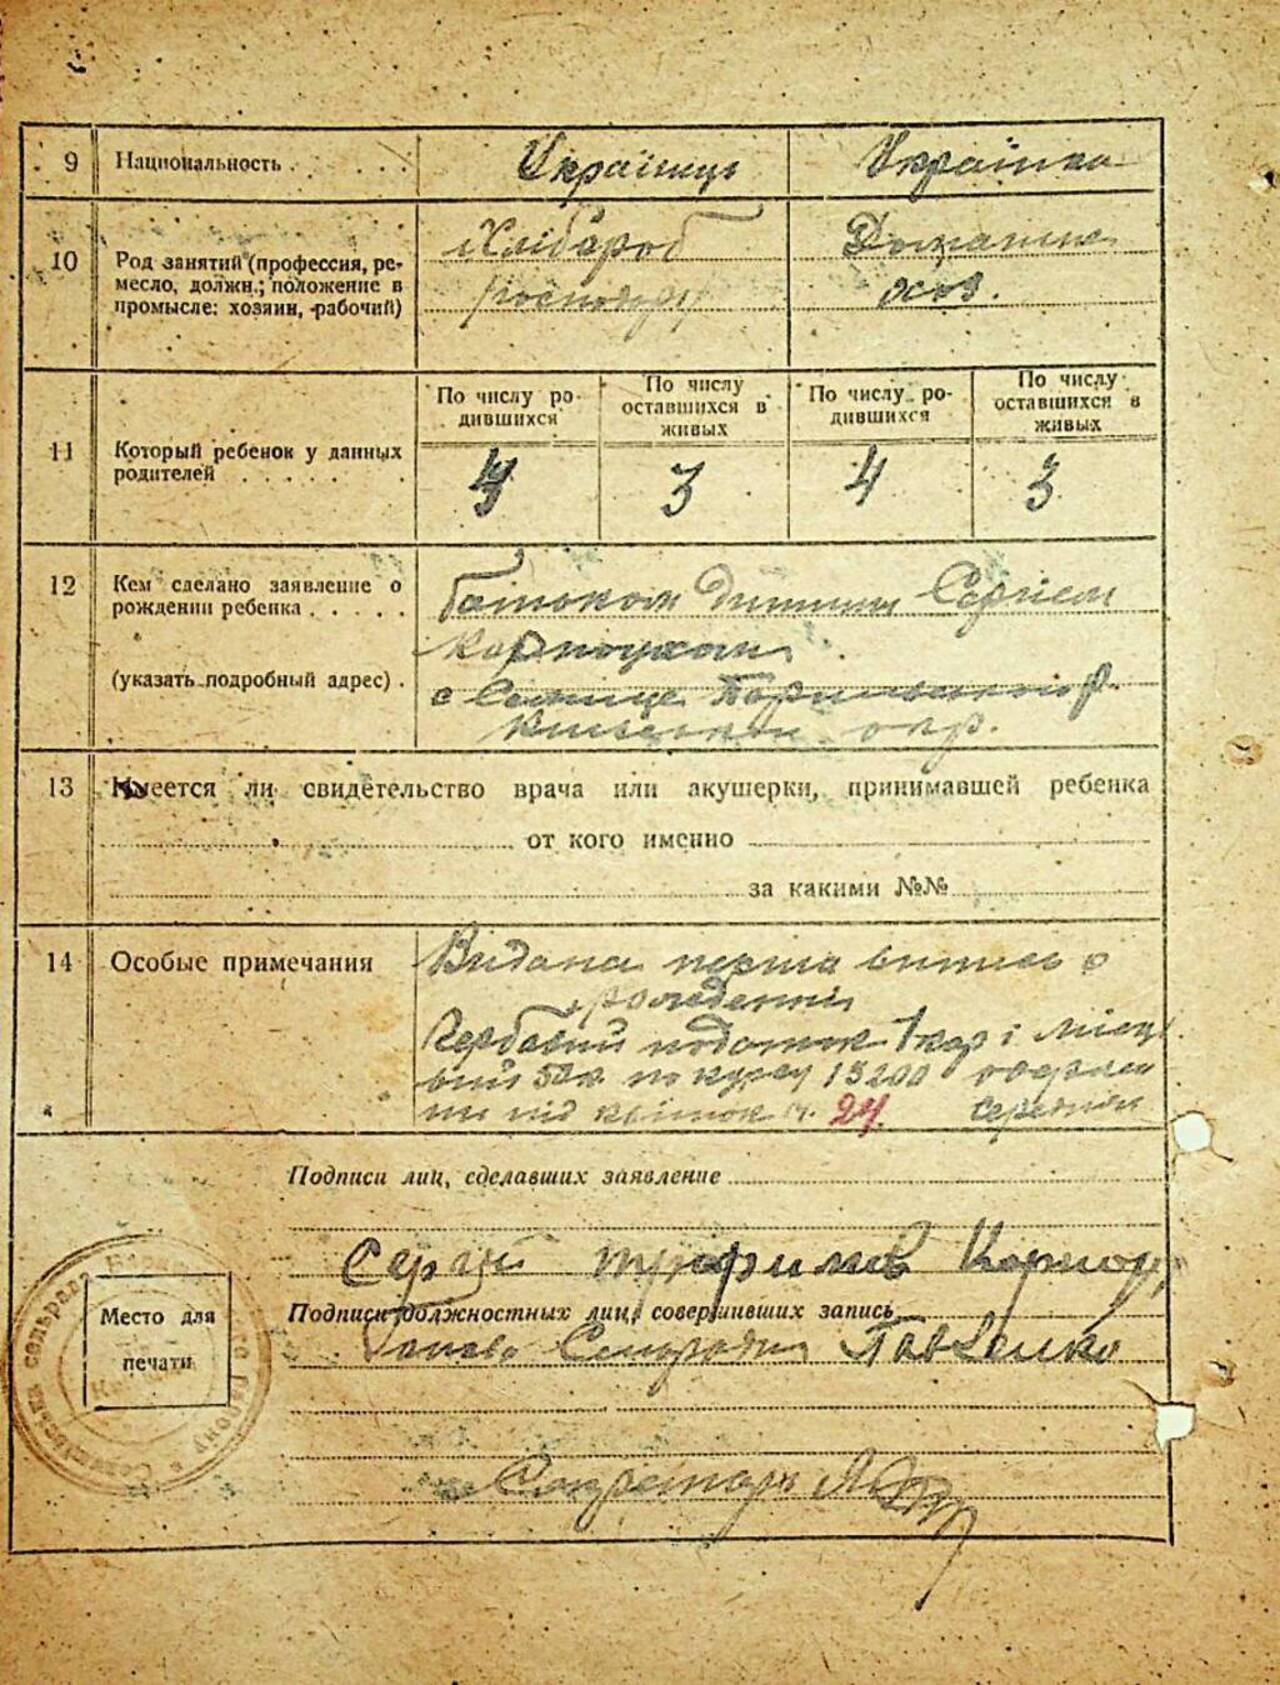 9 Национальность . . . . . Українць Українка
10 Род занятий (профессия, ре-
месло, должн.; положение в
промысле: хозяин, рабочий)
Хлібороб
господар
Домашня
осоз.
11 Который ребенок у данных
родителей . . . . . .
По числу ро-
дившихся
По числу
оставшихся в
живых
По числу ро-
дившихся
По числу
оставшихся в
живых
4 3 4 3
12 Кем сделано заявление о
рождении ребенка . . . . .
(указать подробный адрес) .
батьком дитини Сергієм
с
окр.
13 Имеется ли свидетельство врача или акушерки, принимавшей ребенка
от кого именно
за какими №№
14 Особые примечания
Видана перша випись о
рождении
Гербовий податок 1 кар і місц
вий 50к по курсу 13200
ни під квіток ч. 24.
Подписи лиц, сделавших заявление
Сергій Трофимов
Подписи должностных лиц, совершивших запись
Голова Сельради Павленко
Место для
печати
Секретарь